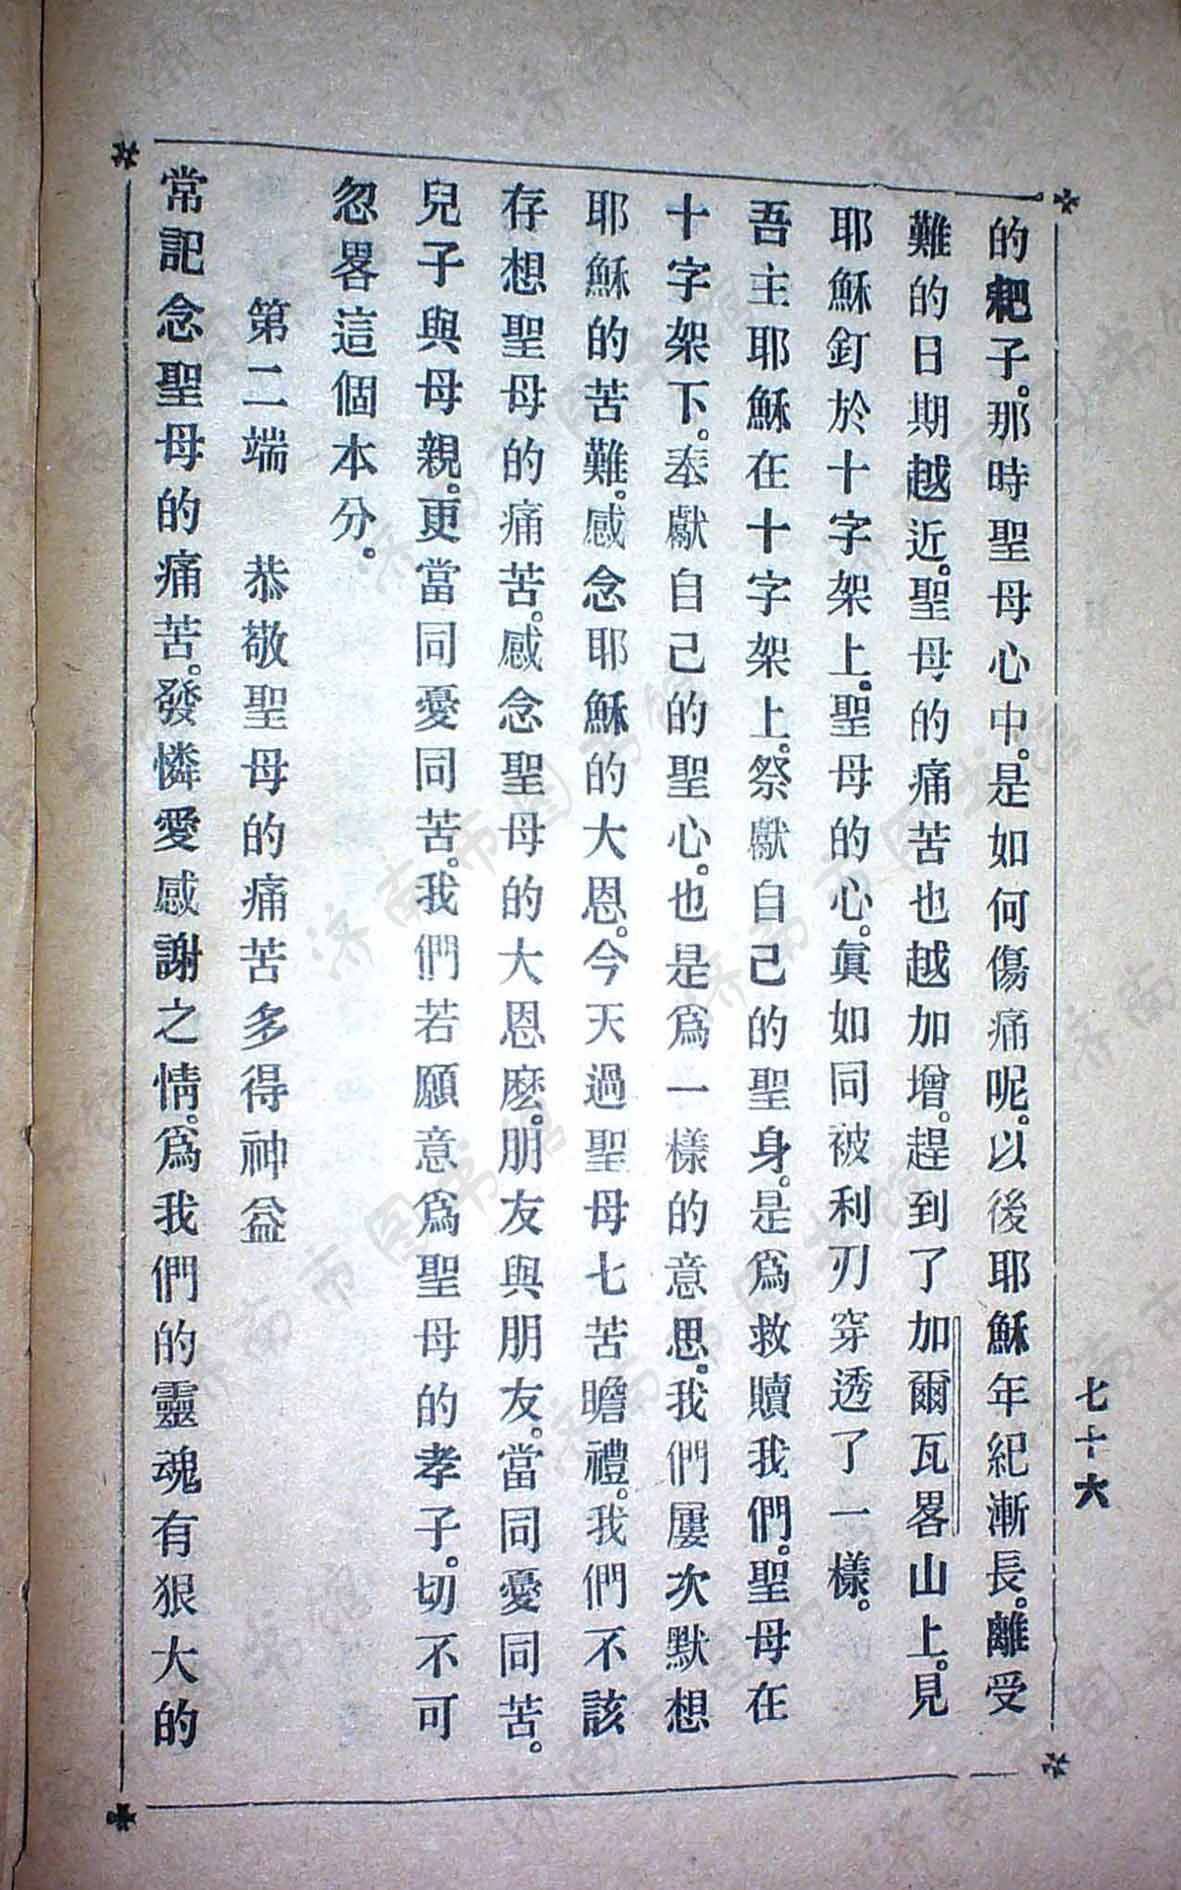 七十六
的耙子。那時聖母心中。是如何傷痛呢。以後耶穌年紀漸長。離受
難的日期越近。聖母的痛苦也越加增。趕到了加爾瓦畧山上。見
耶穌釘於十字架上。聖母的心。眞如同被利刃穿透了一樣。
吾主耶穌在十字架上。祭獻自己的聖身。是爲救贖我們。聖母在
十字架下。奉獻自己的聖心。也是爲一樣的意思。我們屢次默想
耶穌的苦難。感念耶穌的大恩。今天過聖母七苦瞻禮。我們不該
存想聖母的痛苦。感念聖母的大恩麽。朋友與朋友。當同憂同苦。
兒子與母親。更當同憂同苦。我們若願意爲聖母的孝子。切不可
忽畧這個本分。
第二端　恭敬聖母的痛苦多得神益
常記念聖母的痛苦。發憐愛感謝之情。爲我們的靈魂有狠大的
济南市图书馆